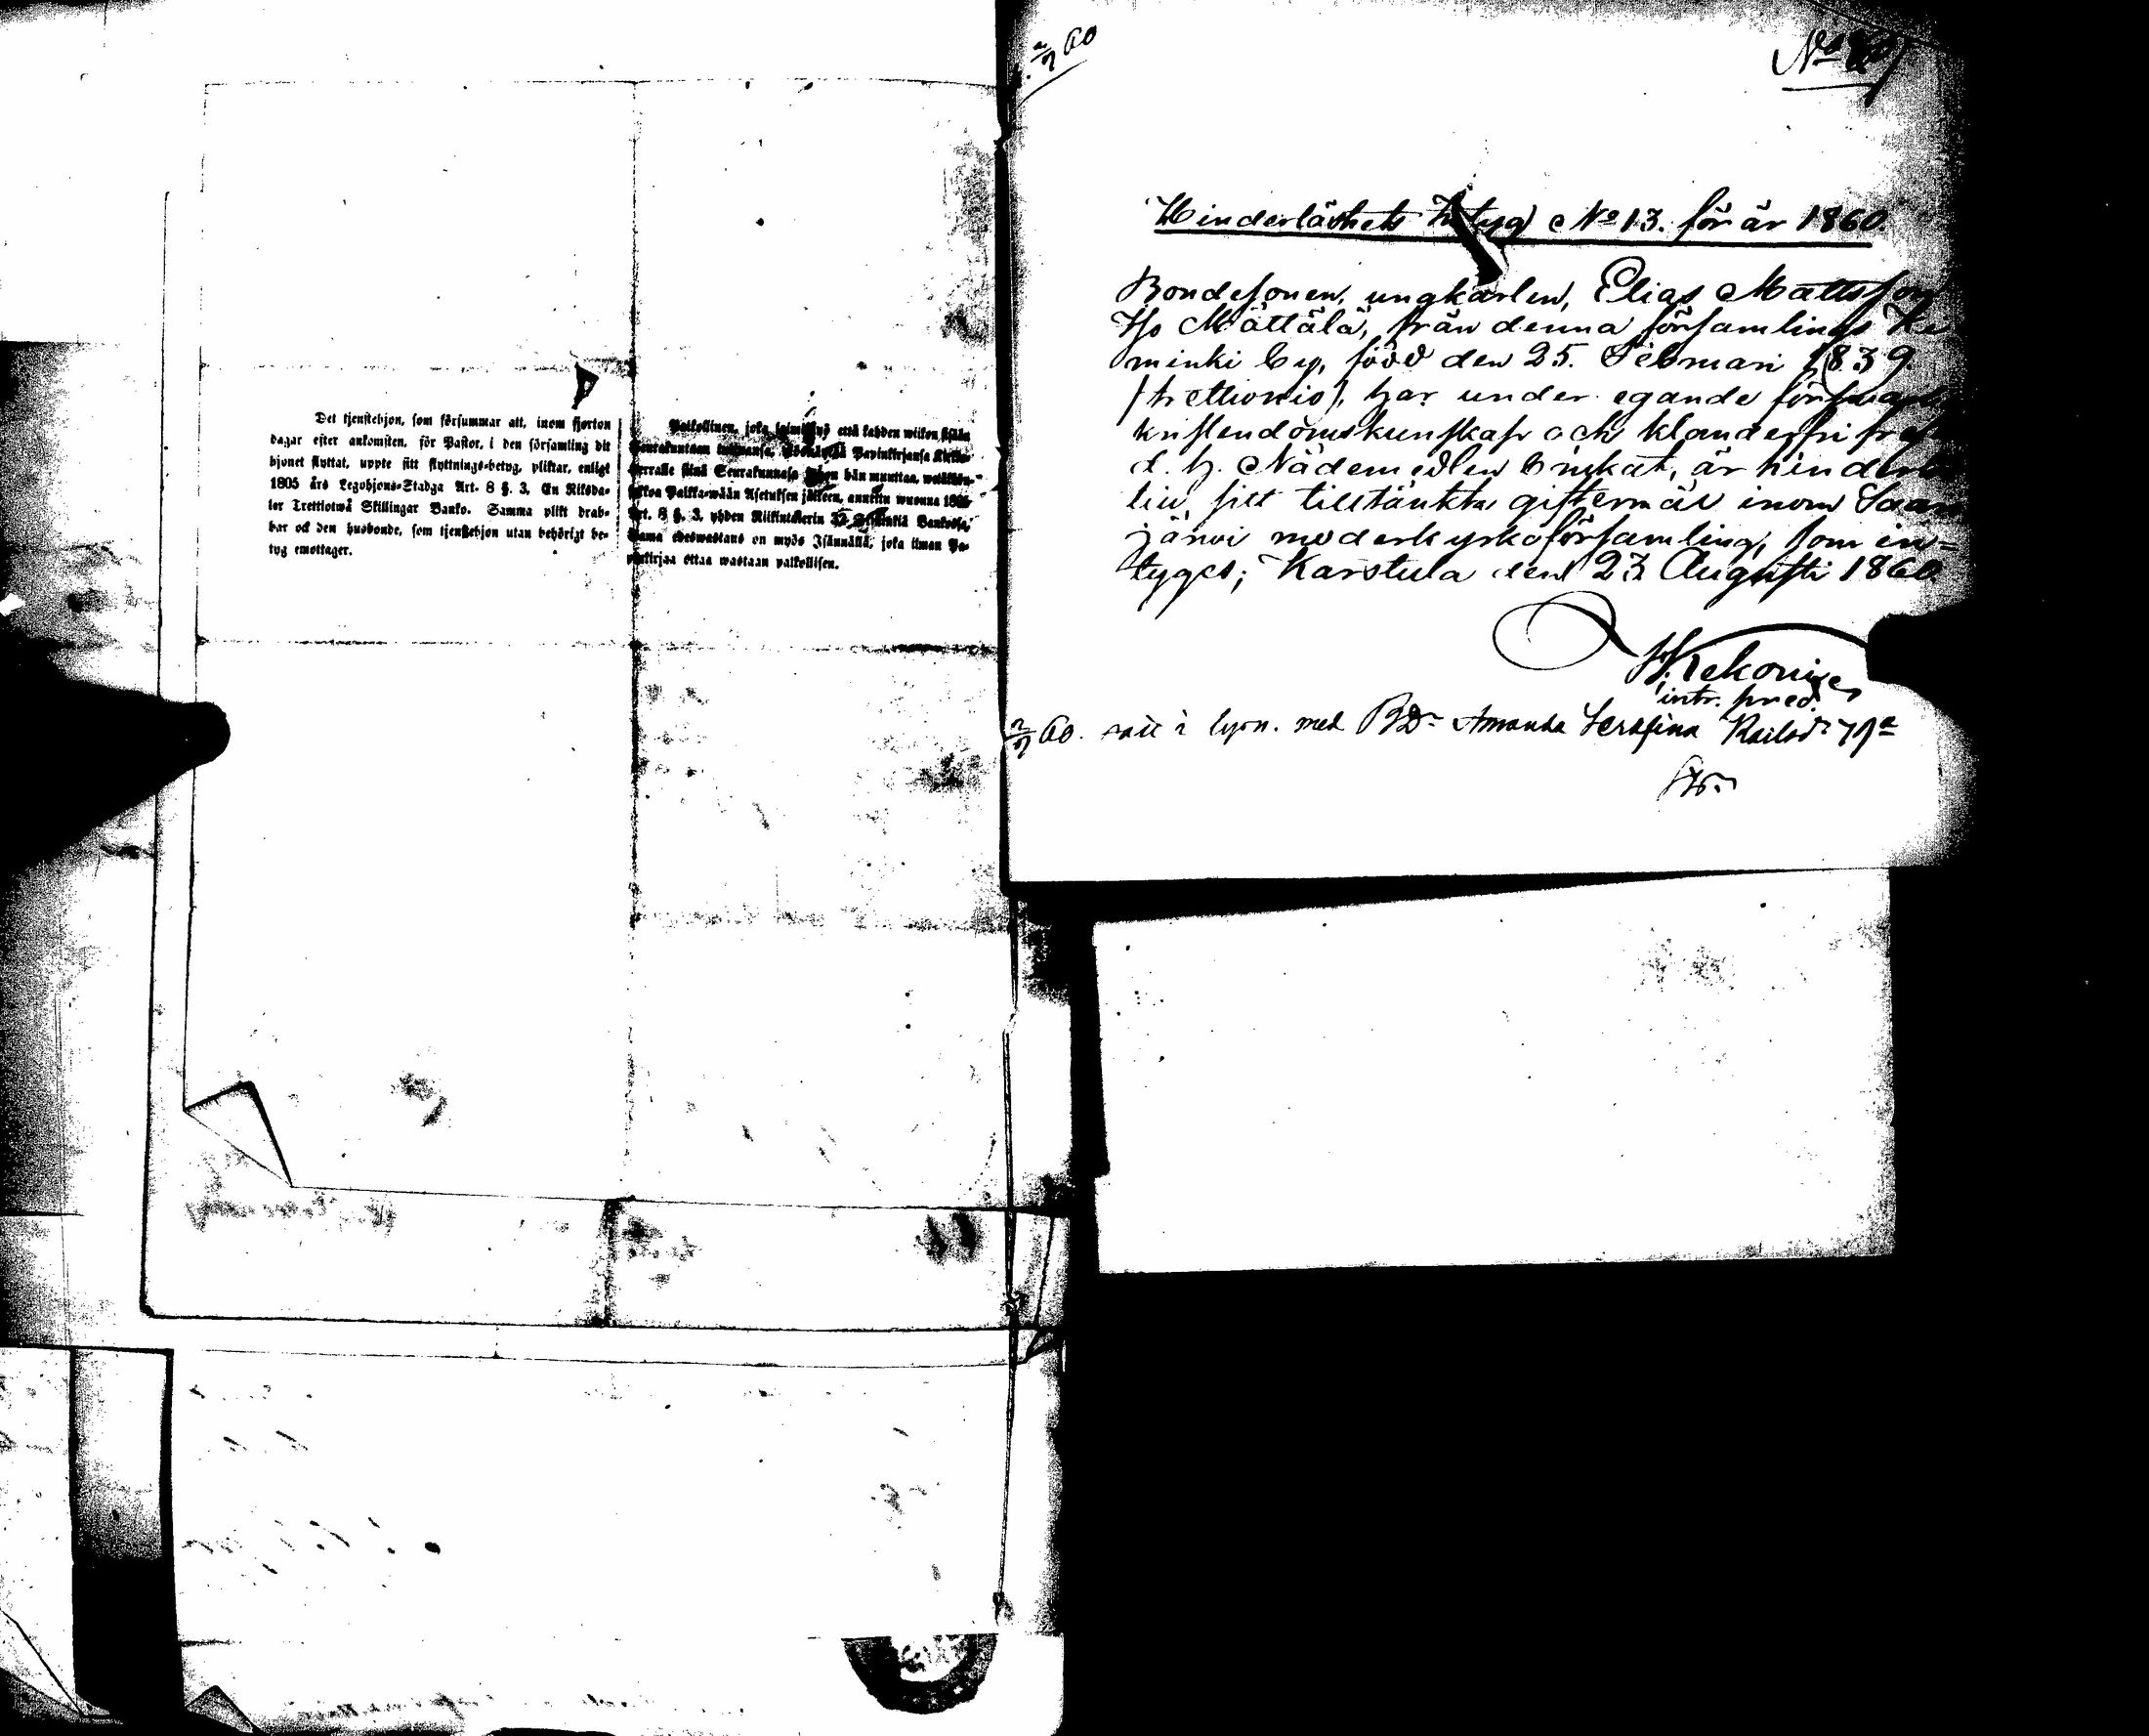 Det tjenstehjon, som försummar att, inom fjorton
dagar efter ankomsten, för Pastor, i den församling dit
hjonet flyttat, uppte sitt flyttnings-betyg, pliktar, enligt
1805 års Legohjons-Stadga Art. 8 §. 3, En Riksda-
ler Trettiotwå Skillingar Banko. Samma plikt drab-
bar ock den husbonde, som tjenstehjon utan behörigt be-
tyg emottager.
Palkollinen, joka laiminlyö että kahden wiikon sisään
Seurakuntaan tultuansa, Papinkirjansa Kirkko-
herralle siinä Seurakunnasa hän muuttaa,
Palkka-wään Asetuksen jälkeen, annettu wuonna 1805
Art. 8 §. 3, yhden Riikintalerin 32 Bankossa.
Sama edeswastaus on myös Isännällä, joka ilman Pa-
pinkirjaa ottaa wastaan palkollisen.
2/9 60
No
Hinderlöshets Betyg No 13. för år 1860.
Bondesonen, ungkarlen, Elias Mattsson
Iso Mättälä, från denna församlings Ki
minki by, född den 25. Februari 1839.
/trettionio/, har under egande försvarlig
kristendomskunskap och klanderfri
d. h. Nådemedlen brukat, är hinders
lös, sitt tilltänkta giftermål inom Saari
järvi moderkyrkoförsamling, som in-
tyges; Karstula den 23 Augusti 1860.
Kekonius
intr. pred.
2/9 60. med BD. Amanda Serafina